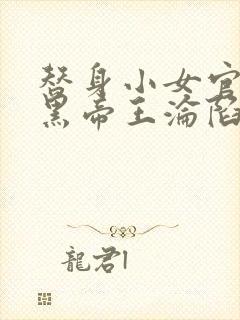 替身小女官
黑帝王淪陷
龍君l